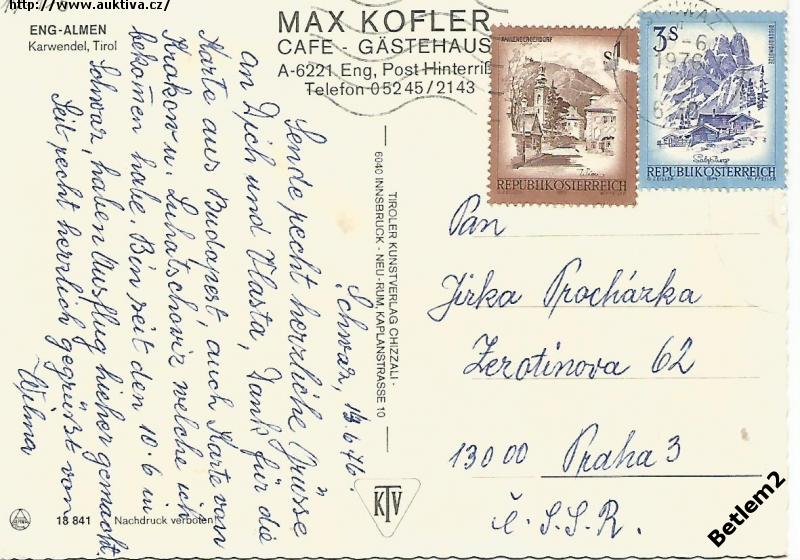 http://www.auktiva.cz/
ENG-ALMEN
Karwendel, Tirol
MAX KOFLER
CAFE - GÄSTEHAUS
A-6221 Eng, Post Hinterriß
Telefon 05245/2143
Schwaz, 13.6.76
Sende recht herzliche Grüsse
an Dich und Vlasta, Dank für die
Karte aus Budapest, auch Karte von
Krakow u. Luhatschowiz welche ich
bekomen habe. Bin seit den 10.6 in
Schwaz, haben Ausflug hieher gemacht.
Seit recht herzlich gegrüßt von
Wilma
TIROLER KUNSTVERLAG CHIZZALI -
6040 INNSBRUCK - NEU-RUM, KAPLANSTRASSE 10
KTV
18 841 Nachdruck verboten
S1
REPUBLIK ÖSTERREICH
3S
1976
Salzburg
REPUBLIK ÖSTERREICH
Pan
Jirka Procházka
Žerotinova 62
13000 Praha 3
Č.S.S.R.
Betlem2